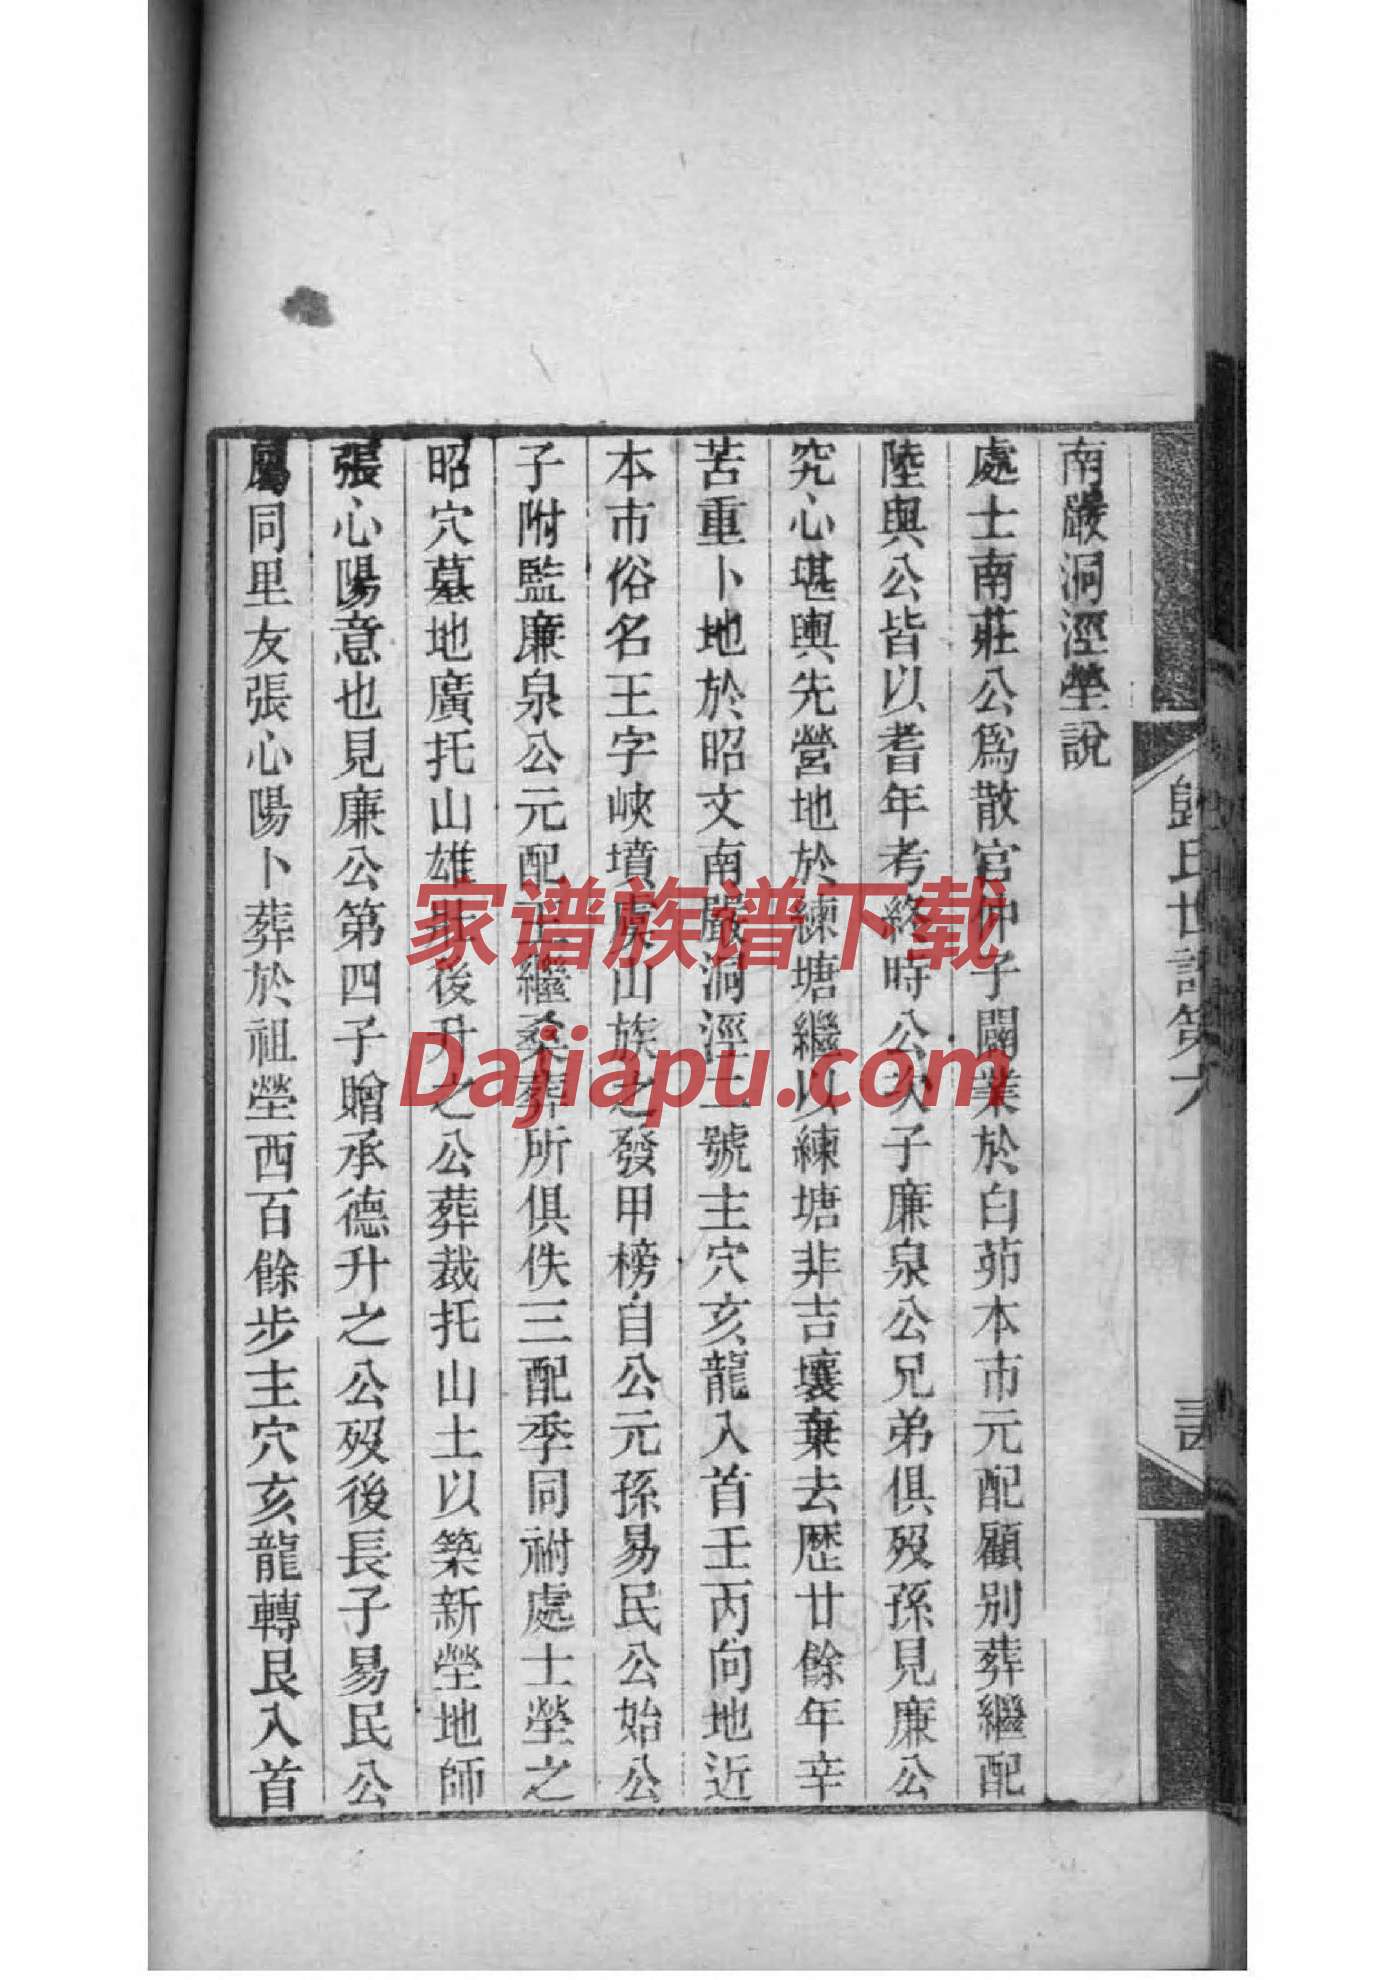 南巖洞涇塋說
處士南莊公爲散官仲子闢業於白茆本市元配顧別葬繼配
陸與公皆以耆年考終時公次子廉泉公兄弟俱歿孫見廉公
究心堪輿先營地於練塘繼以練塘非吉壤棄去歷廿餘年辛
苦重卜地於昭文南巖洞涇二號主穴亥龍入首壬丙向地近
本市俗名王字峽墳虞山族之發甲榜自公元孫易民公始公
子附監廉泉公元配王繼桑葬所俱佚三配季同祔處士塋之
昭穴墓地廣托山雄葬後升之公葬裁托山土以築新塋地師
張心陽意也見廉公第四子贈承德升之公歿後長子易民公
屬同里友張心陽卜葬於祖塋西百餘步主穴亥龍轉艮入首
歸氏世譜第六
家谱族谱下载
Dajiapu.com